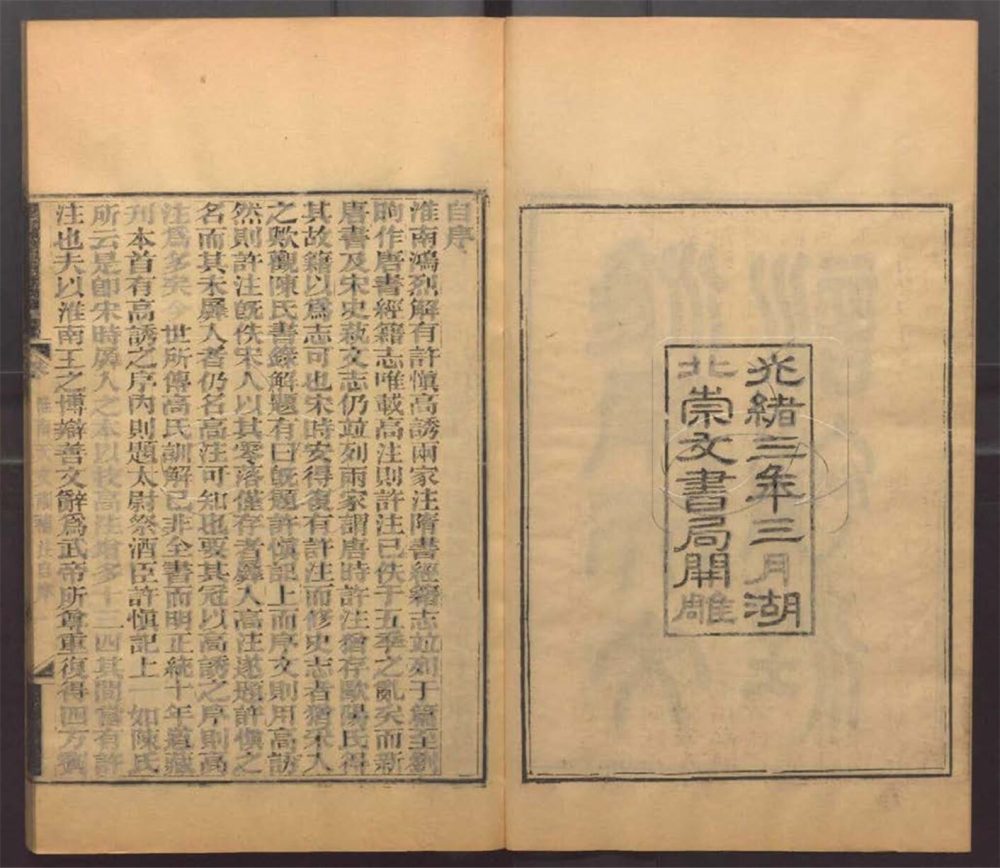 光緒三年三月湖
北崇文書局開雕
自序
淮南鴻烈解有許愼高誘兩家注隋書經籍志竝列于篇至劉
昫作唐書經籍志唯載高注則許注已佚于五季之亂矣而新
唐書及宋史蓺文志仍竝列兩家謂唐時許注猶存歐陽氏得
其故籍以爲志可也宋時安得復有許注而修史志者猶采入
之歟觀陳氏書錄解題有曰旣題許愼記上而序文則用高誘
然則許注旣佚宋人以其零落僅存者羼入高注遂題許愼之
名而其未羼入者仍名高注可知也要其冠以高誘之序則高
注爲多矣今世所傳高氏訓解已非全書而明正統十年道藏
刊本首有高誘之序內則題太尉祭酒臣許愼記上一如陳氏
所云是卽宋時羼入之本以校高注增多十三四其閒當有許
注也夫以淮南王之博辯善文辭爲武帝所尊重復得四方賓
淮南天文訓補注自序